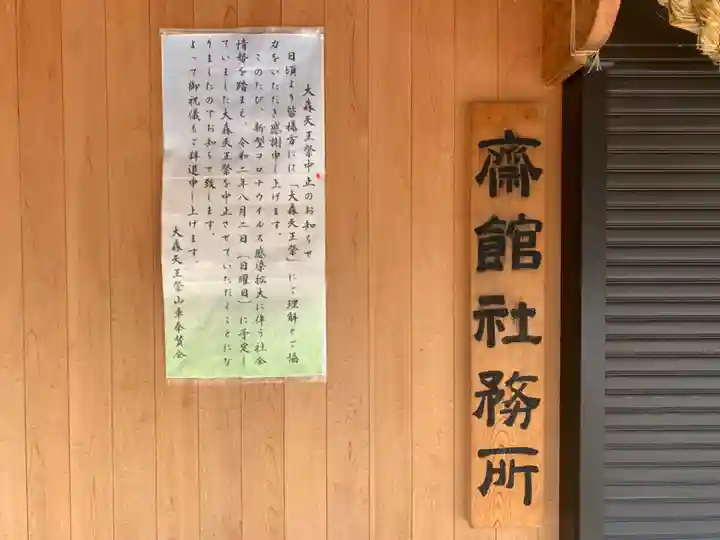 齋館社務所
大森天王祭中止のお知らせ
日頃より皆様方には「大森天王祭」にご理解やご協
力をいただき感謝申し上げます。
このたび、新型コロナウイルス感染拡大に伴う社会
情勢を踏まえ、令和二年八月二日(日曜日)に予定し
ていました大森天王祭を中止させていただくことにな
りましたのでお知らせ致します。
よって御祝儀もご辞退申し上げます。
大森天王祭山車奉賛会